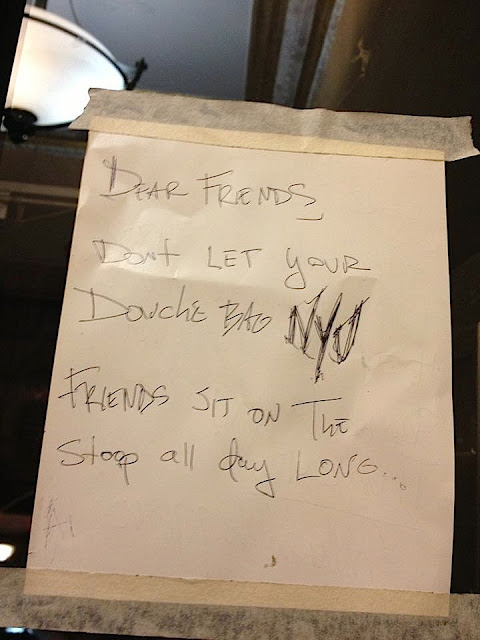 DEAR FRENDS,
DONT LET YOUR
DOUCHE BAG NYU
FRIENDS SIT ON THE
Stoop all day LONG...